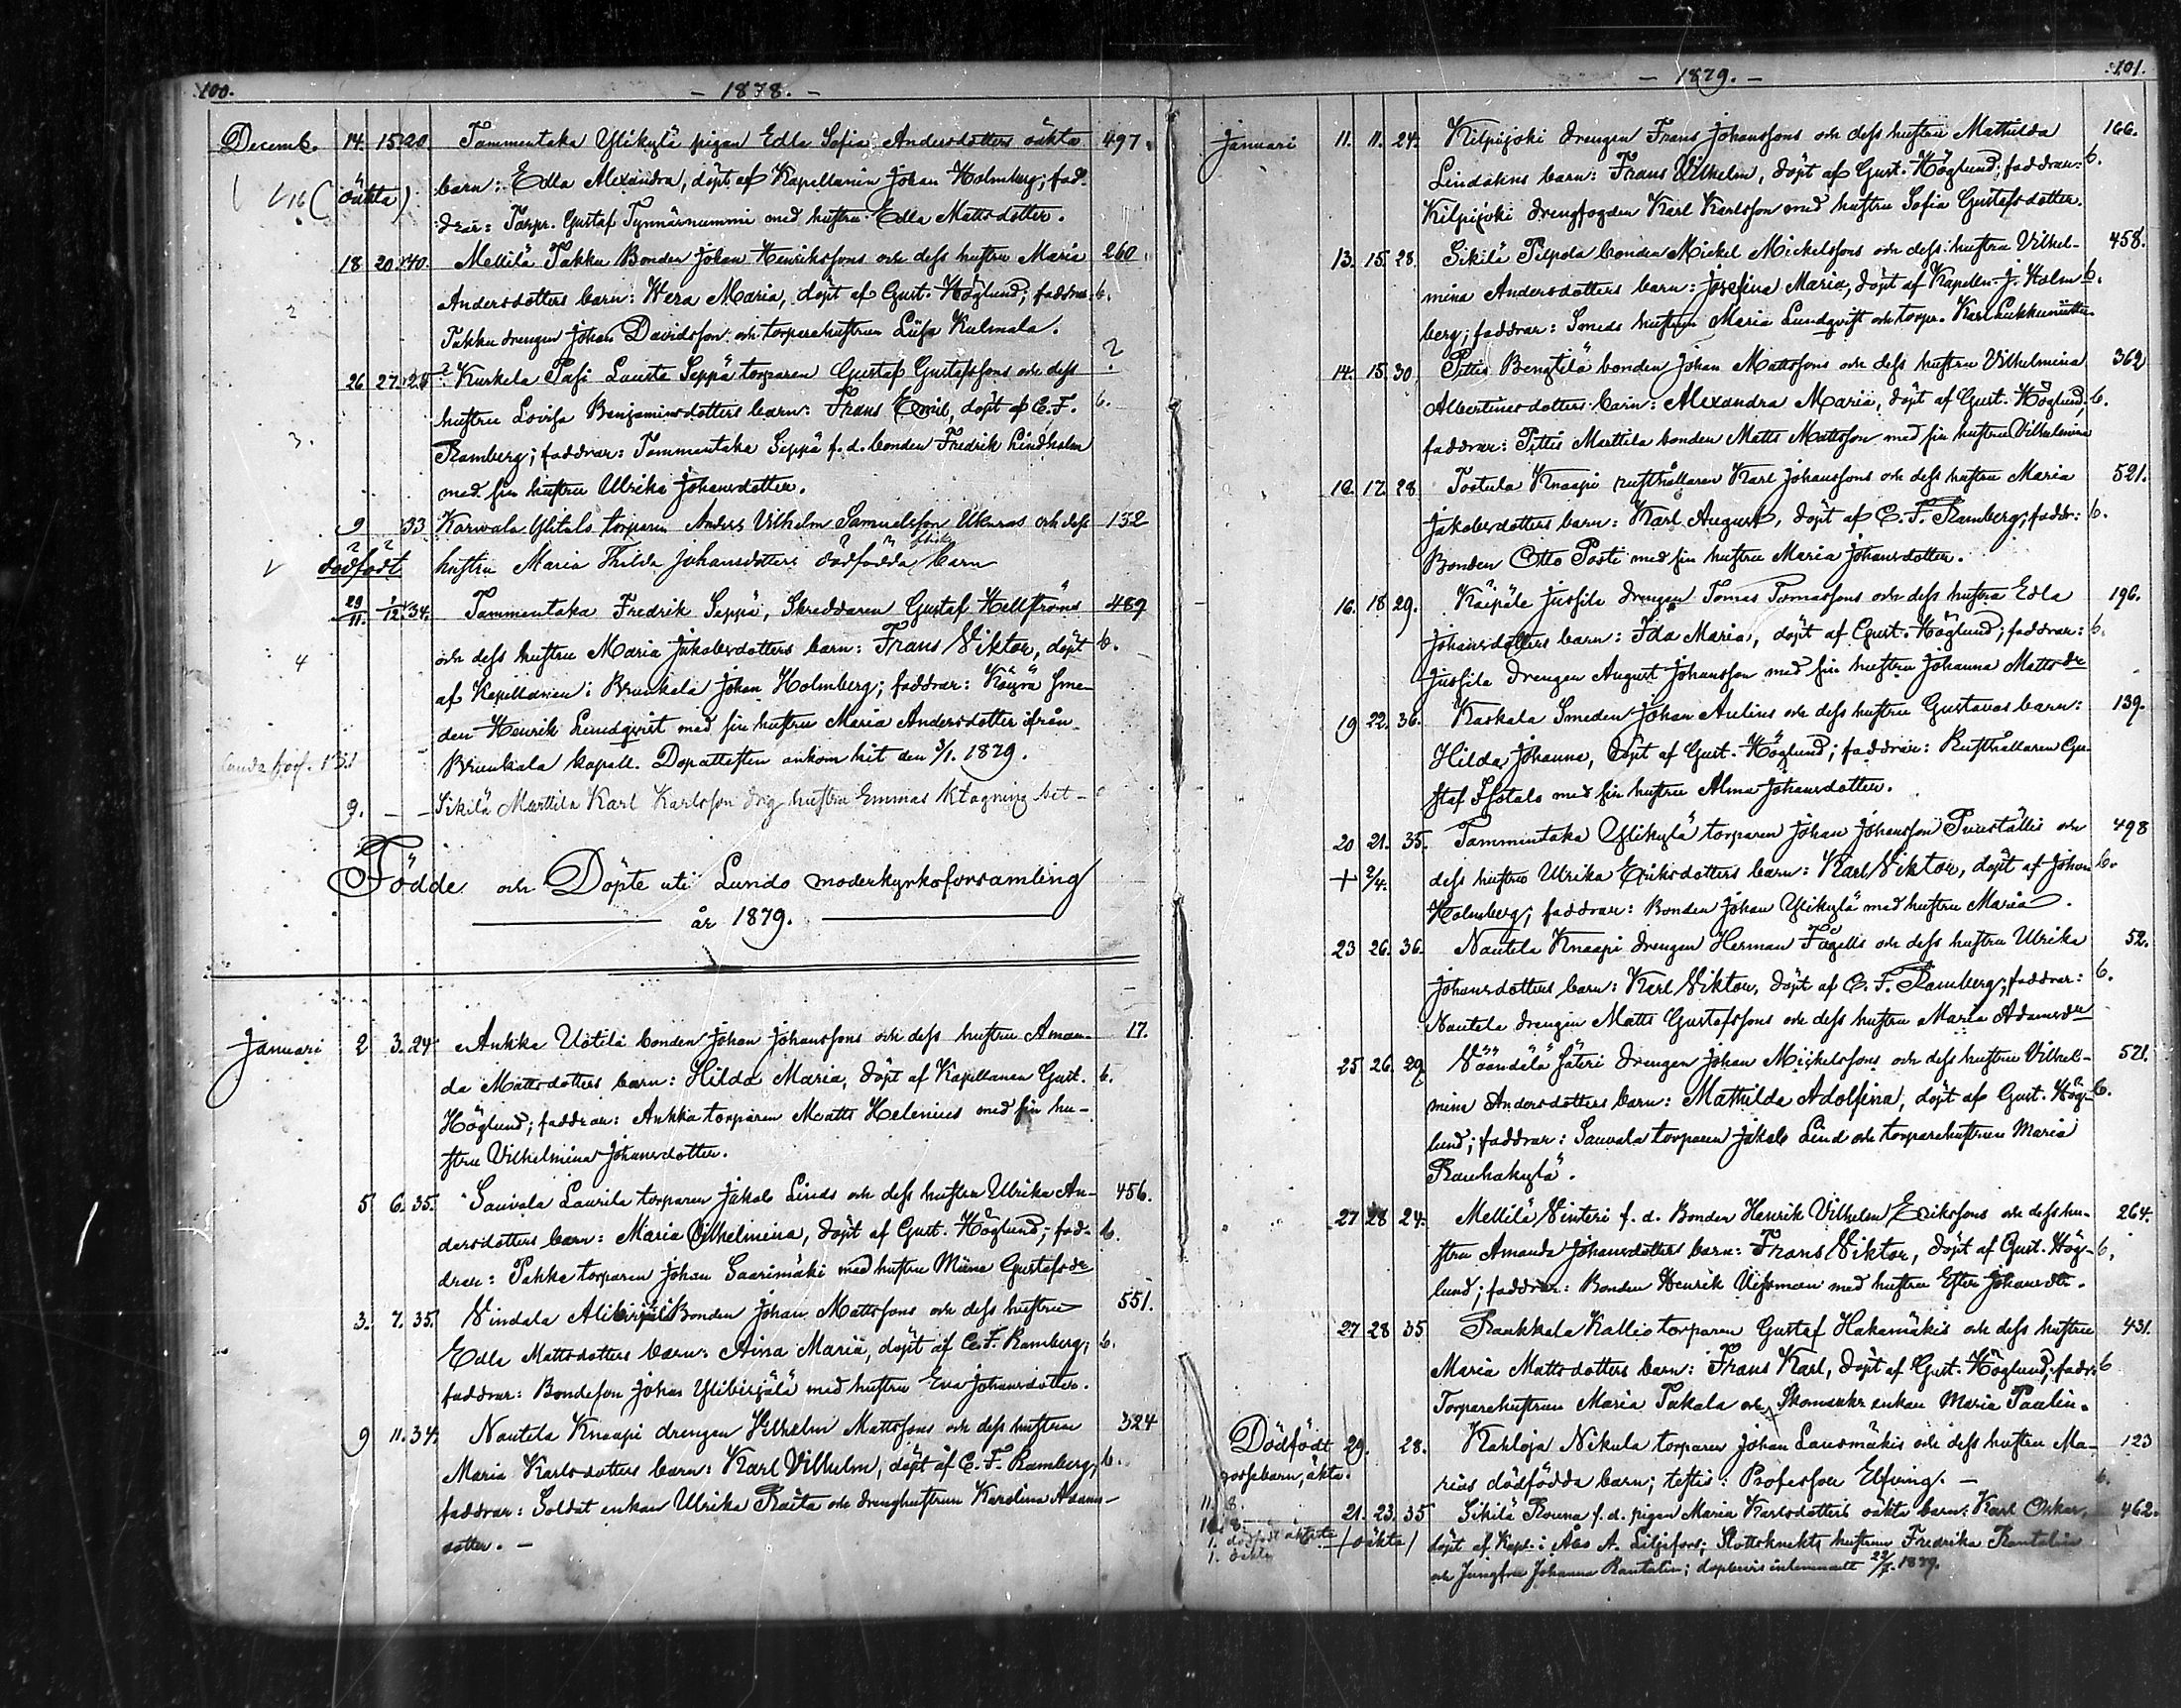 100. - 1878. -
Decemb. 14. 15 20 Tammentaka Ylikylä pigan Edla Sofia Andersdotters oäkta 497.
16 (oäkta) barn: Edla Alexandra, döpt af Kapellanen Johan Holmberg; fad-
drar: Torpr. Gustaf Tynnärnummi med hustru Edla Mattsdotter.
18 20 40. Mellilä Takku Bonden Johan Henrikssons och dess hustru Maria 260.
2 Andersdotters barn: Wera Maria, döpt af Gust. Höglund; faddrar: 6.
Takku drengen Johan Davidsson och torparehustrun Lisa Kulmala.
26 27 25 ? Kurkela Pasi Lausta Seppä torparen Gustaf Gustafssons och dess ?
hustru Lovisa Benjaminsdotters barn: Frans Emil, döpt af C. F. 6.
3. Ramberg; faddrar: Tammentaka Seppä f. d. bonden Fredrik Lindholm
med sin hustru Ulrika Johansdotter.
9 33 Karwala Ylitalo torparen Anders Vilhelm Samuelsson Ukuras och dess 132
dödfödt hustru Maria Thilda Johansdotters dödfödda barn
29/11. 1/12. 34. Tammentaka Fredrik Seppä, Skreddaren Gustaf Hellströms 489
och dess hustru Maria Jakobsdotters barn: Frans Viktor, döpt 6.
4 af Kapellanen i Brunkala Johan Holmberg; faddrar: Köyrä Sme-
den Henrik Lundqvist med sin hustru Maria Andersdotter ifrån
Brunkala kapell. Dopattesten ankom hit den 3/1. 1879.
9. - - Sikilä Marttila Karl Karlsson drg hustru Emmas
Födde och Döpte uti Lundo moderkyrkoforsamling
år 1879.
Januari 2 3. 24 Ankka Uotila bonden Johan Johanssons och dess hustru Aman- 17.
da Mattsdotters barn: Hilda Maria, döpt af Kapellanen Gust. 6.
Höglund; faddrar: Ankka torparen Matts Helenius med sin hu-
stru Vilhelmina Johansdotter.
5 6. 35. Sauvala Laurila torparen Jakob Linds och dess hustru Ulrika An- 456.
dersdotters barn: Maria Vilhelmina, döpt af Gust. Höglund; fad- 6.
drar: Pakka torparen Johan Saarimäki med hustru Miina Gustafsdr
3. 7. 35. Vindala Alibirjälä Bonden Johan Mattssons och dess hustru 551.
Edla Mattsdotters barn: Aina Maria, döpt af C. F. Ramberg; 6.
faddrar: Bondeson Johan Ylibirjälä med hustru Eva Johansdotter.
9 11. 34. Nautela Knaapi drengen Vilhelm Mattssons och dess hustru 324
Maria Karlsdotters barn: Karl Vilhelm, döpt af C. F. Ramberg; 6.
faddrar: Soldat enkan Ulrika Raita och drenghustrun Karolina Adams-
dotter. -
- 1879. - 101.
Januari 11. 11. 24. Kilpijoki drengen Frans Johanssons och dess hustru Mathilda 166.
Lindakens barn: Frans Vilhelm, döpt af Gust. Höglund; faddrar: 6.
Kilpijoki drengfogden Karl Karlsson med hustru Sofia Gustafsdotter.
13. 15. 28. Sikilä Pilpola bonden Mickel Mickelssons och dess hustru Vilhel- 458.
mina Andersdotters barn: Josefina Maria, döpt af Kapellan J. Holm- 6.
berg; faddrar: Smeds hustrun Maria Lundqvist och torpr. Karl
14. 15. 30. Pittis Bengtilä bonden Johan Mattssons och dess hustru Vilhelmina 362
Albertinas dotters barn: Alexandra Maria, döpt af Gust. Höglund; 6.
faddrar: Pittis Marttila bonden Matts Mattsson med sin hustru Vilhelmina
16. 17. 28 Tostula Knaapi rusthållaren Karl Johanssons och dess hustru Maria 521.
Jakobsdotters barn: Karl August, döpt af C. F. Ramberg; faddr: 6.
Bonden Otto Poste med sin hustru Maria Johansdotter.
16. 18 29. Käipäle Jussila drengen Tomas Tomassons och dess hustru Edla 196.
Johansdotters barn: Ida Maria, döpt af Gust. Höglund; faddrar: 6.
Jussila drengen August Johansson med sin hustru Johanna Mattsdr
19 22. 36. Kaskala Smeden Johan Aulins och dess hustru Gustavas barn: 139.
Hilda Johanna, döpt af Gust. Höglund; faddrar: Rusthållaren Gu-
staf Isotalo med sin hustru Alma Johansdotter.
20 21. 35. Tammentaka Ylikylä torparen Johan Johansson Punställis och 498
+ 2/4. dess hustru Ulrika Eriksdotters barn: Karl Viktor, döpt af Johan 6.
Holmberg; faddrar: Bonden Johan Ylikylä med hustru Maria.
23 26. 36. Nautela Knaapi drengen Herman Fågells och dess hustru Ulrika 52.
Johansdotters barn: Karl Viktor, döpt af C. F. Ramberg; faddrar: 6.
Nautela drengen Matts Gustafssons och dess hustru Maria Adamsdr
25 26. 29. Väändälä Säteri drengen Johan Mickelssons och dess hustru Vilhel- 571.
mina Andersdotters barn: Mathilda Adolfina, döpt af Gust. Hög- 6.
lund; faddrar: Sauvala torparen Jakob Lind och torparehustrun Maria
Rauhakylä.
27 28 24. Mellilä Vinteri f. d. Bonden Henrik Vilhelm Erikssons och dess hu- 264.
stru Amanda Johansdotters barn: Frans Viktor, döpt af Gust. Hög- 6.
lund; faddrar: Bonden Henrik med hustru Ester Johansdtr.
27 28 35 Raukkala Kallio torparen Gustaf Hakamäkis och dess hustru 431.
Maria Mattsdotters barn: Frans Karl, döpt af Gust. Höglund; fadr: 6
Torparehustrun Maria Takala och Skomakr enkan Maria Paalin.
Dödfödt 29. 28. Kahloja Nikula torparen Johan Lausmäkis och dess hustru Ma- 123
gossebarn, äkta. rias dödfödda barn; testis: Professor Elfving. - 6.
11. 8.
21. 23. 35 Sikilä Rouna f. d. pigan Maria Karlsdotters oäkta barn: Karl Oskar, 462.
1. dödfödt äkta
1. oäkta (oäkta) döpt af Kapl. i Åbo A. Liljefors; Slottsknekts hustrun Fredrika Rantalin
och Jungfru Johanna Rantalin; dopbevis inlemnadt 22/7. 1879.